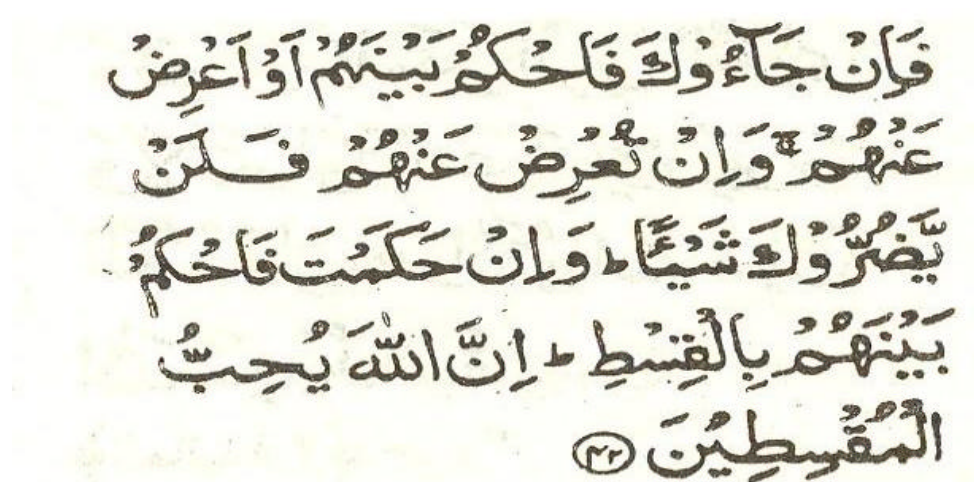 فَاِنْ جَآءُوْكَ فَاحْكُمْ بَيْنَهُمْ اَوْ اَعْرِضْ
عَنْهُمْ ۚ وَاِنْ تُعْرِضْ عَنْهُمْ فَلَنْ
يَّضُرُّوْكَ شَيْئًا ؕ وَاِنْ حَكَمْتَ فَاحْكُمْ
بَيْنَهُمْ بِالْقِسْطِ ؕ اِنَّ اللّٰهَ يُحِبُّ
الْمُقْسِطِيْنَ ۴۲